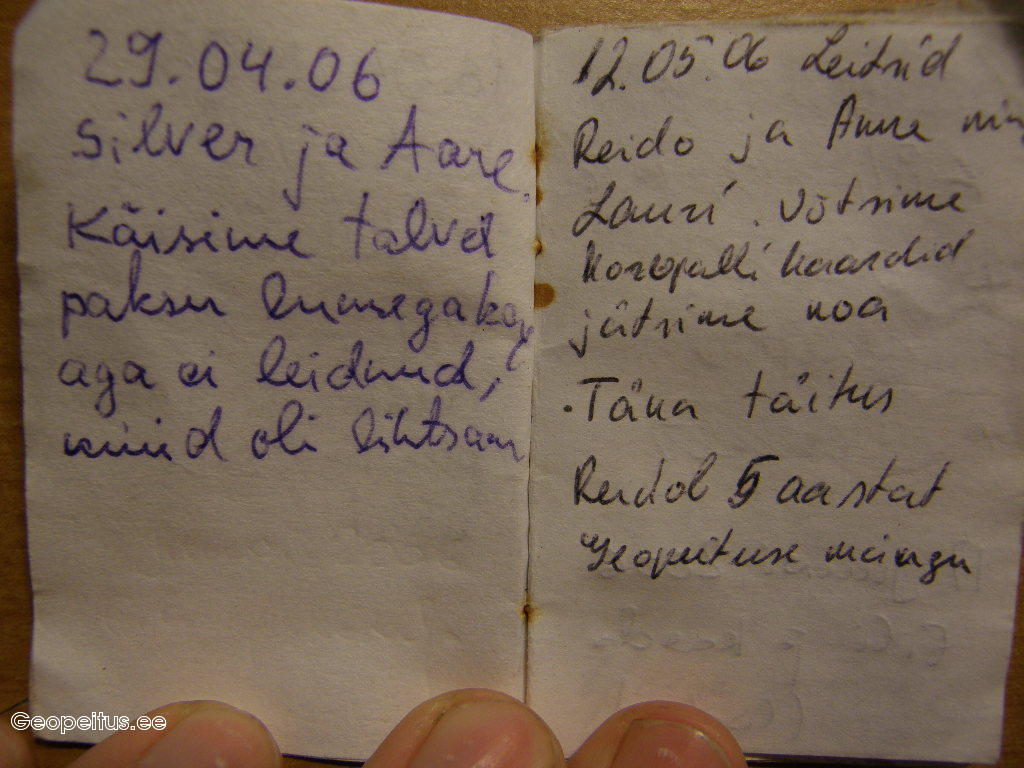 29.04.06
Silver ja Aare.
Käisime talvel
paksu lumega ka
aga ei leidnud,
nüüd oli lihtsam
12.05.06 Leitsid
Reido ja Anne ning
Lauri. Võtsime
Korvpalli kaardid
jätsime noa
. Täna täitus
Reidol 5 aastat
Geopeituse mängu
Geopeitus.ee